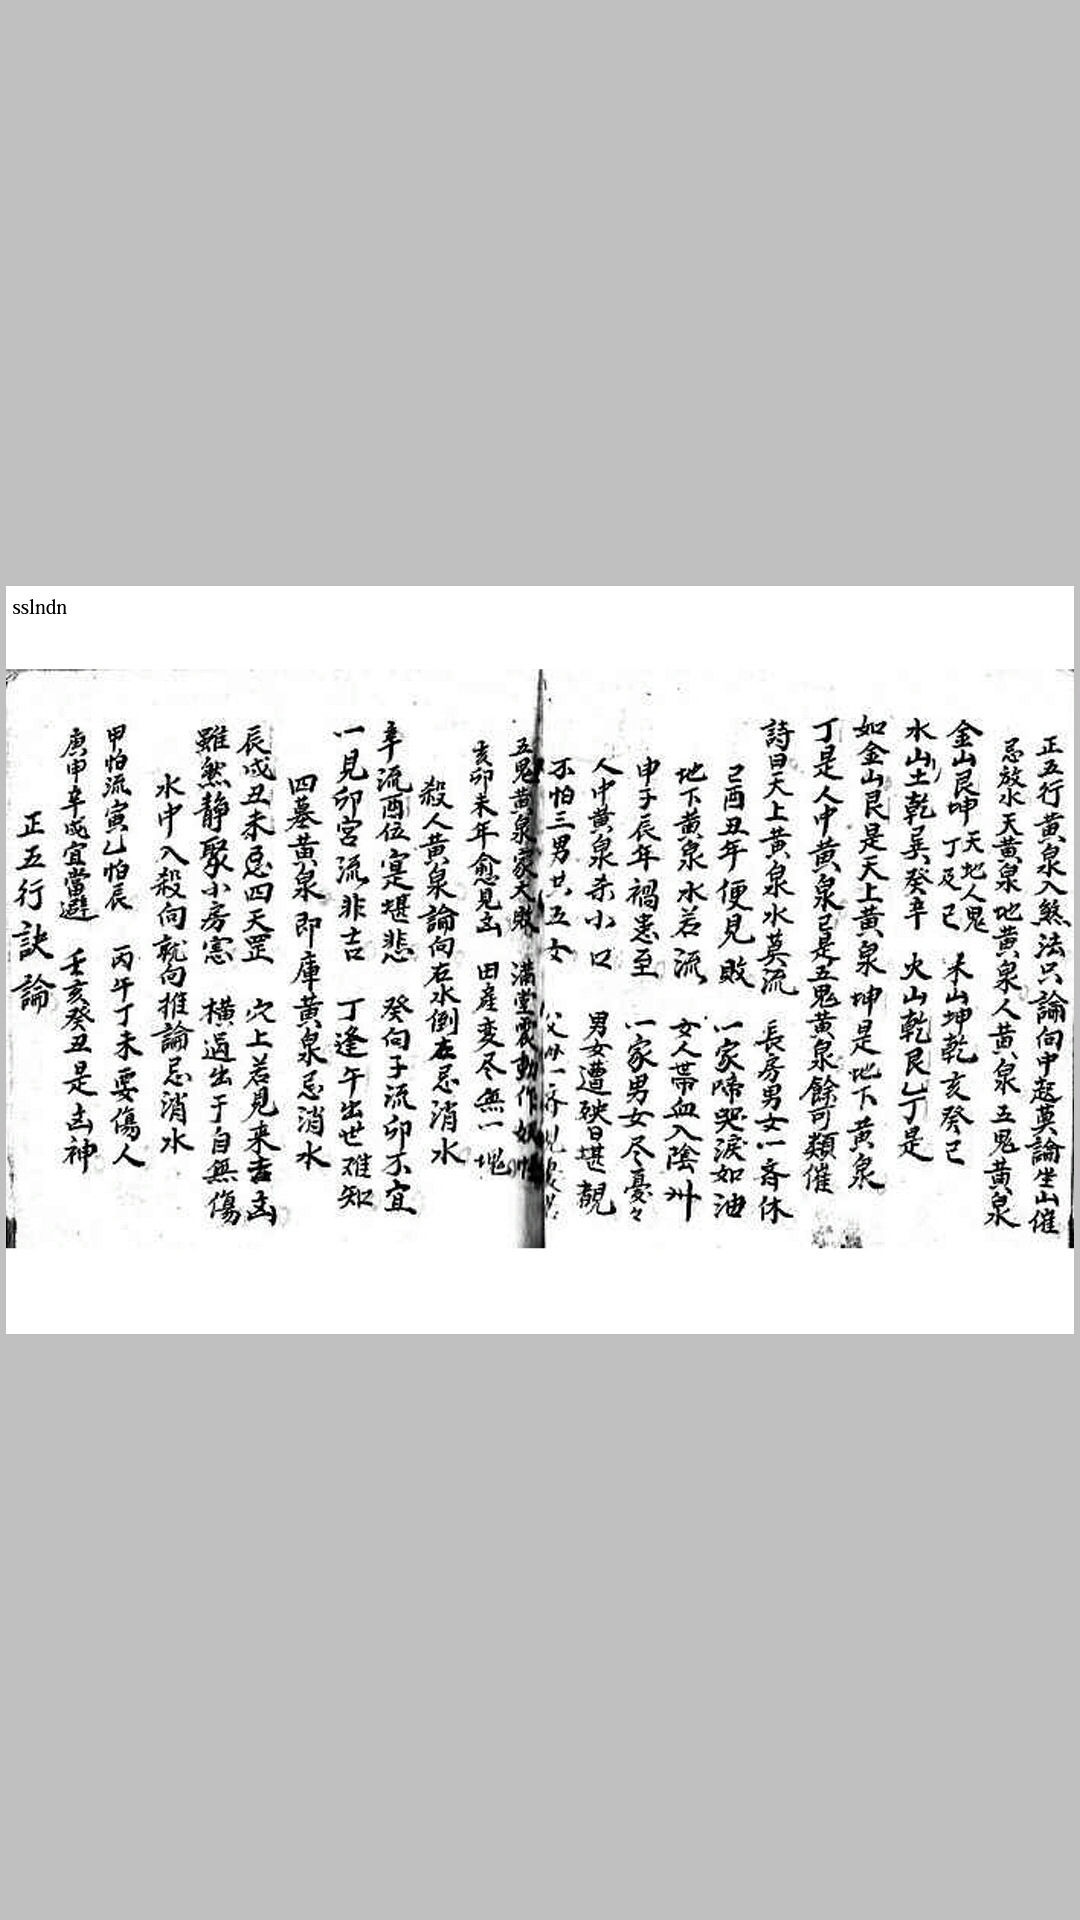 sslndn
正五行黃泉入煞法只論向中起莫論坐山催
忌放水天黃泉地黃泉人黃泉五鬼黃泉
金山艮坤丁及己 天地人鬼 木山坤乾亥癸己
水山土乾巽癸辛 火山乾艮乙丁是
如金山艮是天上黃泉坤是地下黃泉
丁是人中黃泉己是五鬼黃泉餘可類催
詩曰天上黃泉水莫流 長房男女一斉休
己酉丑年便見敗 一家啼哭淚如油
地下黃泉水若流 女人帶血入陰州
申子辰年禍患至 一家男女尽憂々
人中黃泉杀小口 男女遭殃日堪覩
不怕三男共五女 父母一齐
五鬼黃泉家大敗 滿堂震動作妖怪
亥卯未年愈見凶 田產変尽無一塊
殺人黃泉論向右水倒左忌消水
辛流酉位寔堪悲 癸向子流卯不宜
一見卯宮流非吉 丁逢午出世难知
四墓黃泉即庫黃泉忌消水
辰戌丑未忌四天罡 穴上若見来去凶
雖然靜聚小房害 橫過出于自無傷
水中入殺向就向推論忌消水
甲怕流寅乙怕辰 丙午丁未要傷人
庚申辛戌宜當避 壬亥癸丑是凶神
正五行訣論